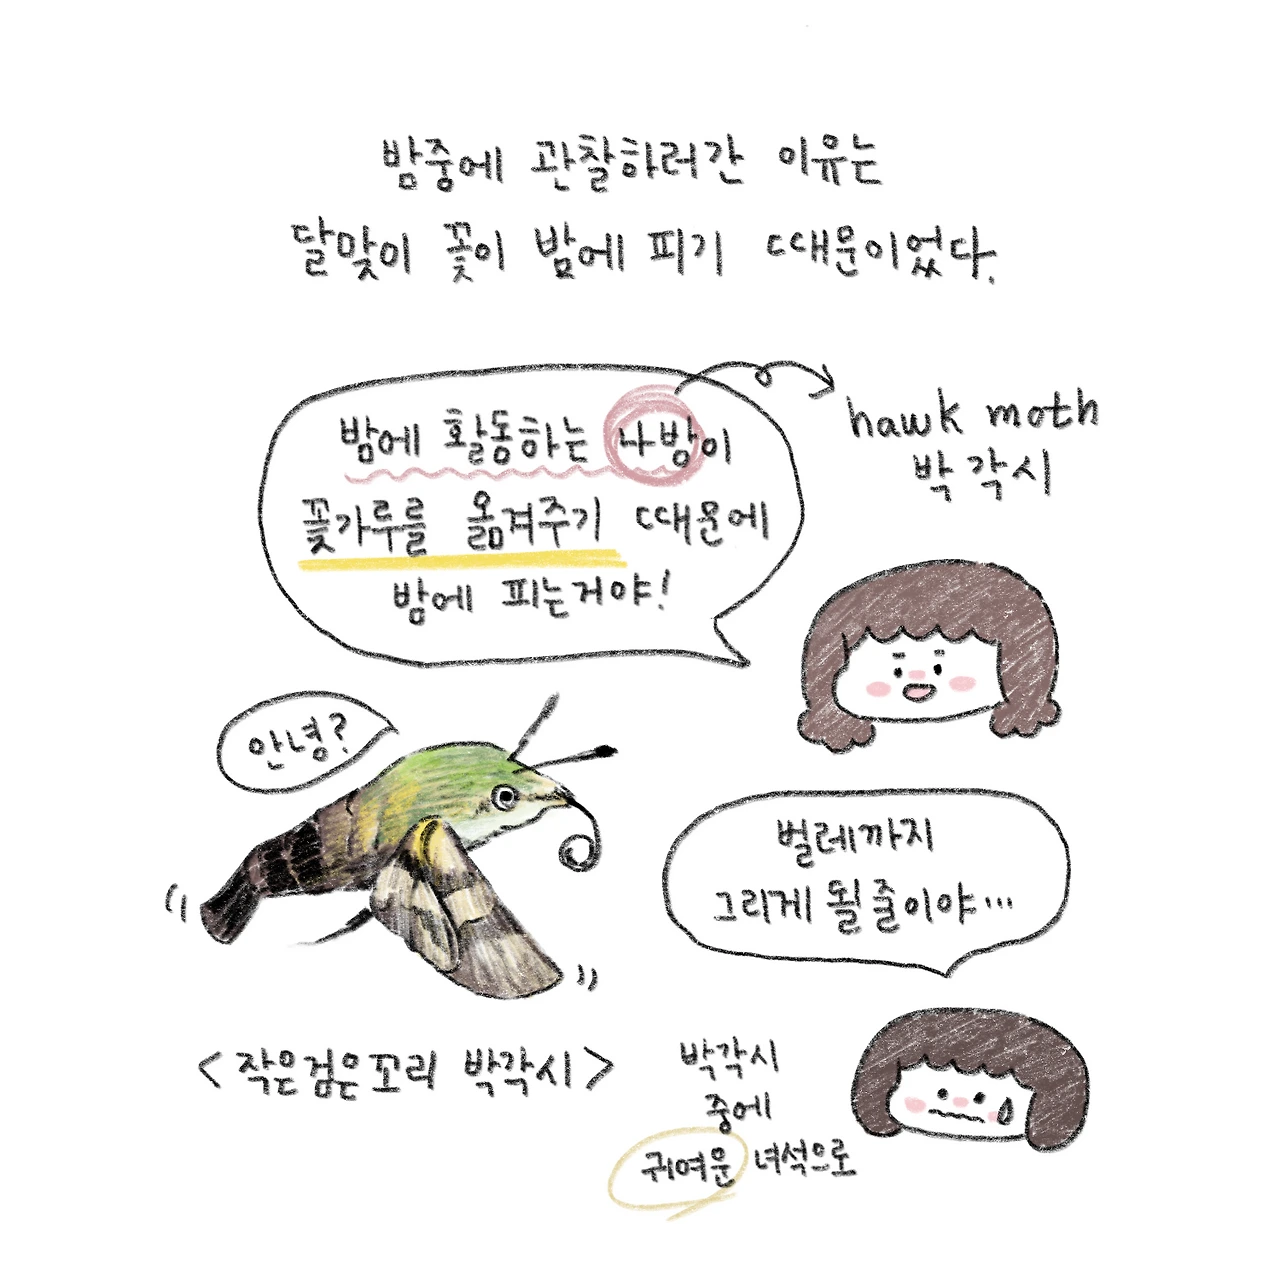 밤중에 관찰하러간 이유는
달맞이 꽃이 밤에 피기 때문이었다.
밤에 활동하는 나방이
꽃가루를 옮겨주기 때문에
밤에 피는거야!
hawk moth
박각시
안녕?
벌레까지
그리게 될 줄이야…
<작은검은꼬리 박각시>
박각시
중에
귀여운 녀석으로